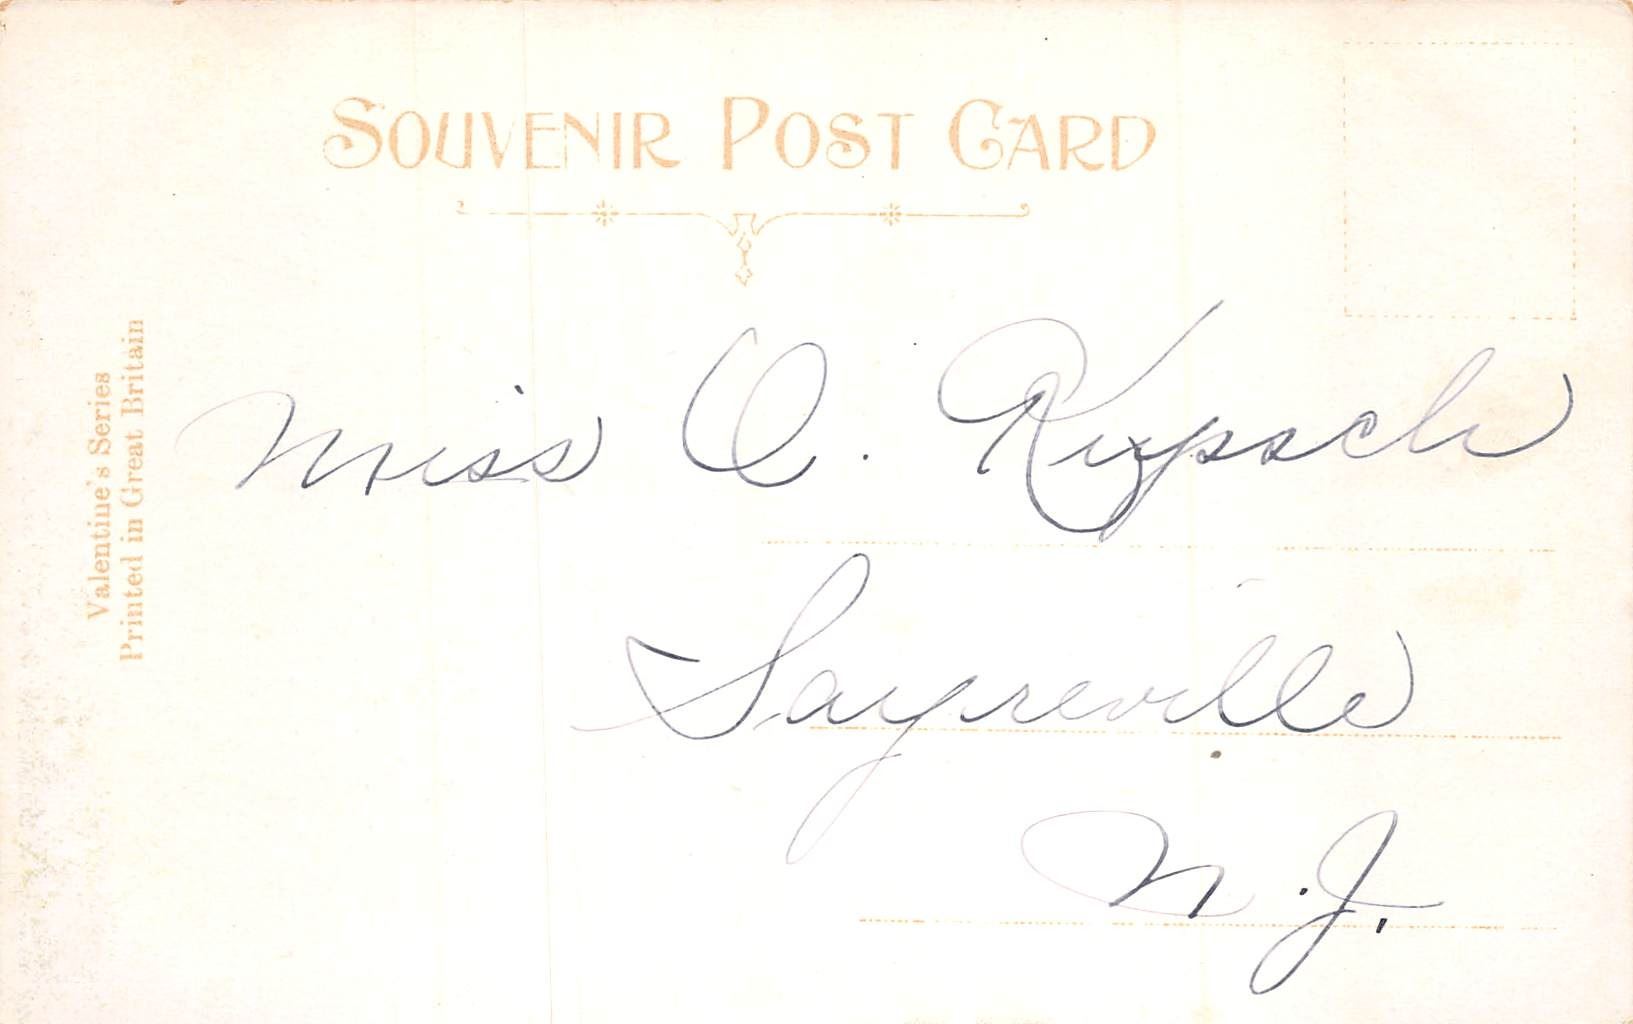 SOUVENIR POST CARD
Valentine's Series
Printed in Great Britain
Miss O.
Sayreville
N.J.